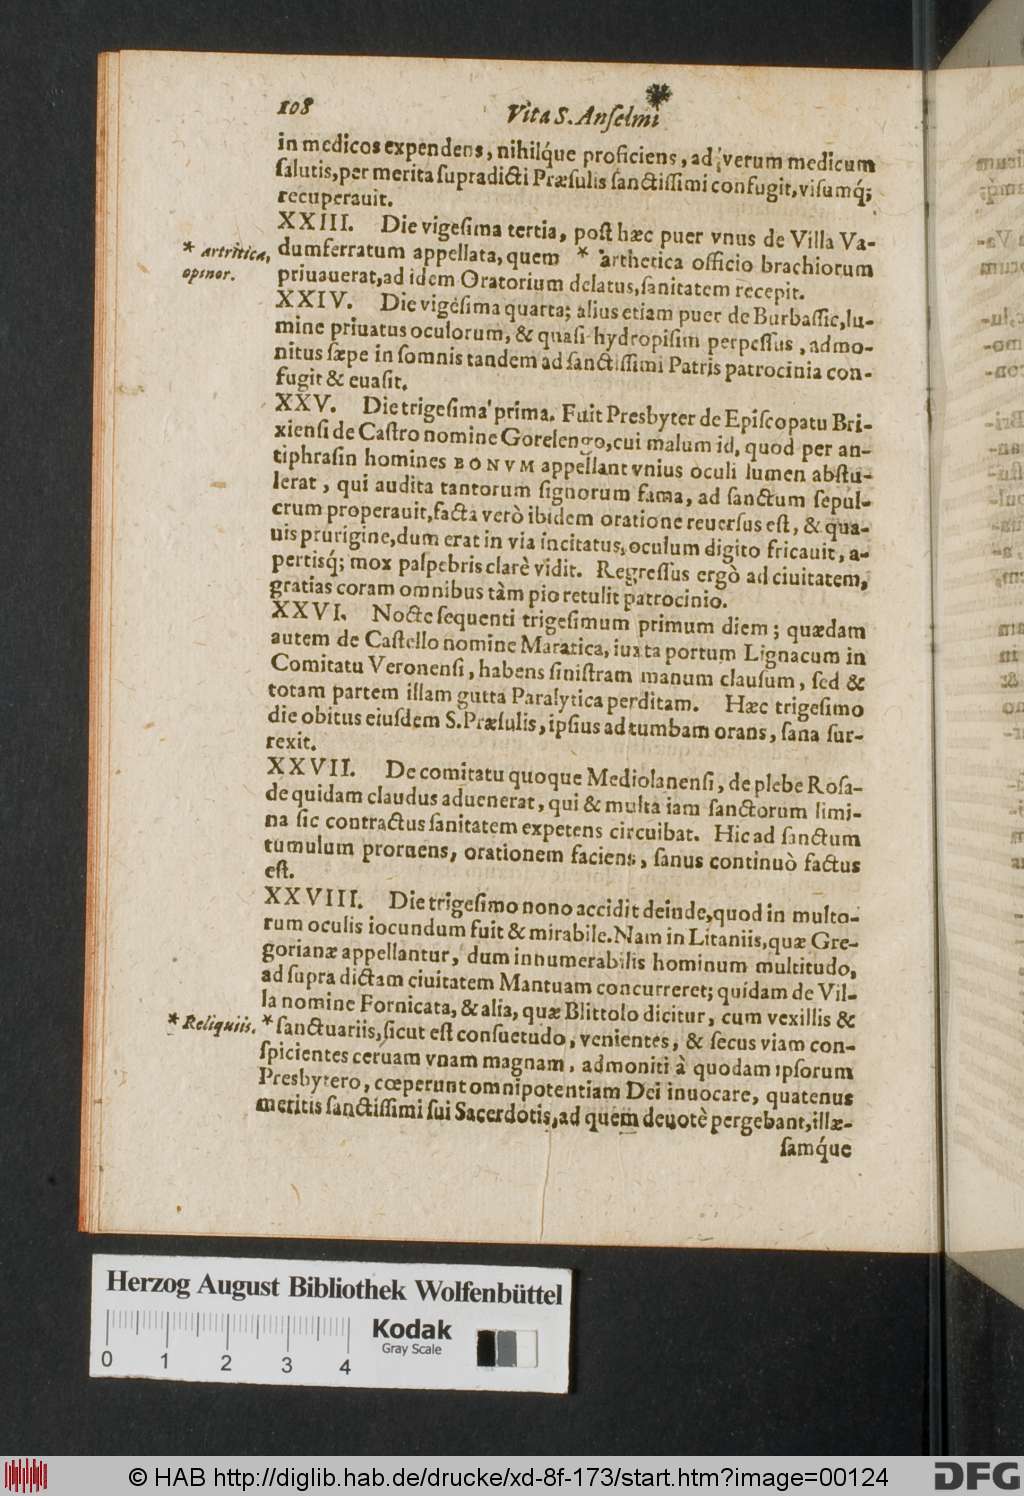 108
Vita S. Anſelmi
in medicos expendens, nihilq́ue proficiens, ad verum medicum
ſalutis, per merita ſupradicti Præſulis ſanctiſſimi confugit, viſumq́;
recuperauit.
XXIII. Die vigeſima tertia, poſt hæc puer vnus de Villa Va-
* artritica, dumferratum appellata, quem * arthetica officio brachiorum
opinor. priuauerat, ad idem Oratorium delatus, ſanitatem recepit.
XXIV. Die vigeſima quarta; alius etiam puer de Burbaſſic, lu-
mine priuatus oculorum, & quaſi hydropiſim perpeſſus, admo-
nitus ſæpe in ſomnis tandem ad ſanctiſſimi Patris patrocinia con-
fugit & euaſit.
XXV. Die trigeſima prima. Fuit Presbyter de Epiſcopatu Bri-
xienſi de Caſtro nomine Gorelengo, cui malum id, quod per an-
tiphraſin homines BONVM appellant vnius oculi lumen abſtu-
lerat, qui audita tantorum ſignorum fama, ad ſanctum ſepul-
crum properauit, facta verò ibidem oratione reuerſus eſt, & qua-
uis prurigine, dum erat in via incitatus, oculum digito fricauit, a-
pertisq́; mox palpebris clarè vidit. Regreſſus ergò ad ciuitatem,
gratias coram omnibus tàm pio retulit patrocinio.
XXVI. Nocte ſequenti trigeſimum primum diem; quædam
autem de Caſtello nomine Maratica, iuxta portum Lignacum in
Comitatu Veronenſi, habens ſiniſtram manum clauſum, ſed &
totam partem illam gutta Paralytica perditam. Hæc trigeſimo
die obitus eiuſdem S. Præſulis, ipſius ad tumbam orans, ſana ſur-
rexit.
XXVII. De comitatu quoque Mediolanenſi, de plebe Roſa-
de quidam claudus aduenerat, qui & multa iam ſanctorum limi-
na ſic contractus ſanitatem expetens circuibat. Hic ad ſanctum
tumulum proruens, orationem faciens, ſanus continuò factus
eſt.
XXVIII. Die trigeſimo nono accidit deinde, quod in multo-
rum oculis iocundum fuit & mirabile. Nam in Litaniis, quæ Gre-
gorianæ appellantur, dum innumerabilis hominum multitudo,
ad ſupra dictam ciuitatem Mantuam concurreret; quidam de Vil-
la nomine Fornicata, & alia, quæ Blittolo dicitur, cum vexillis &
* Reliquiis. * ſanctuariis, ſicut eſt conſuetudo, venientes, & ſecus viam con-
ſpicientes ceruam vnam magnam, admoniti à quodam ipſorum
Presbytero, cœperunt omnipotentiam Dei inuocare, quatenus
meritis ſanctiſſimi ſui Sacerdotis, ad quem deuotè pergebant, illæ-
ſamq́ue
Herzog August Bibliothek Wolfenbüttel
0 1 2 3 4
Kodak
Gray Scale
© HAB http://diglib.hab.de/drucke/xd-8f-173/start.htm?image=00124
DFG